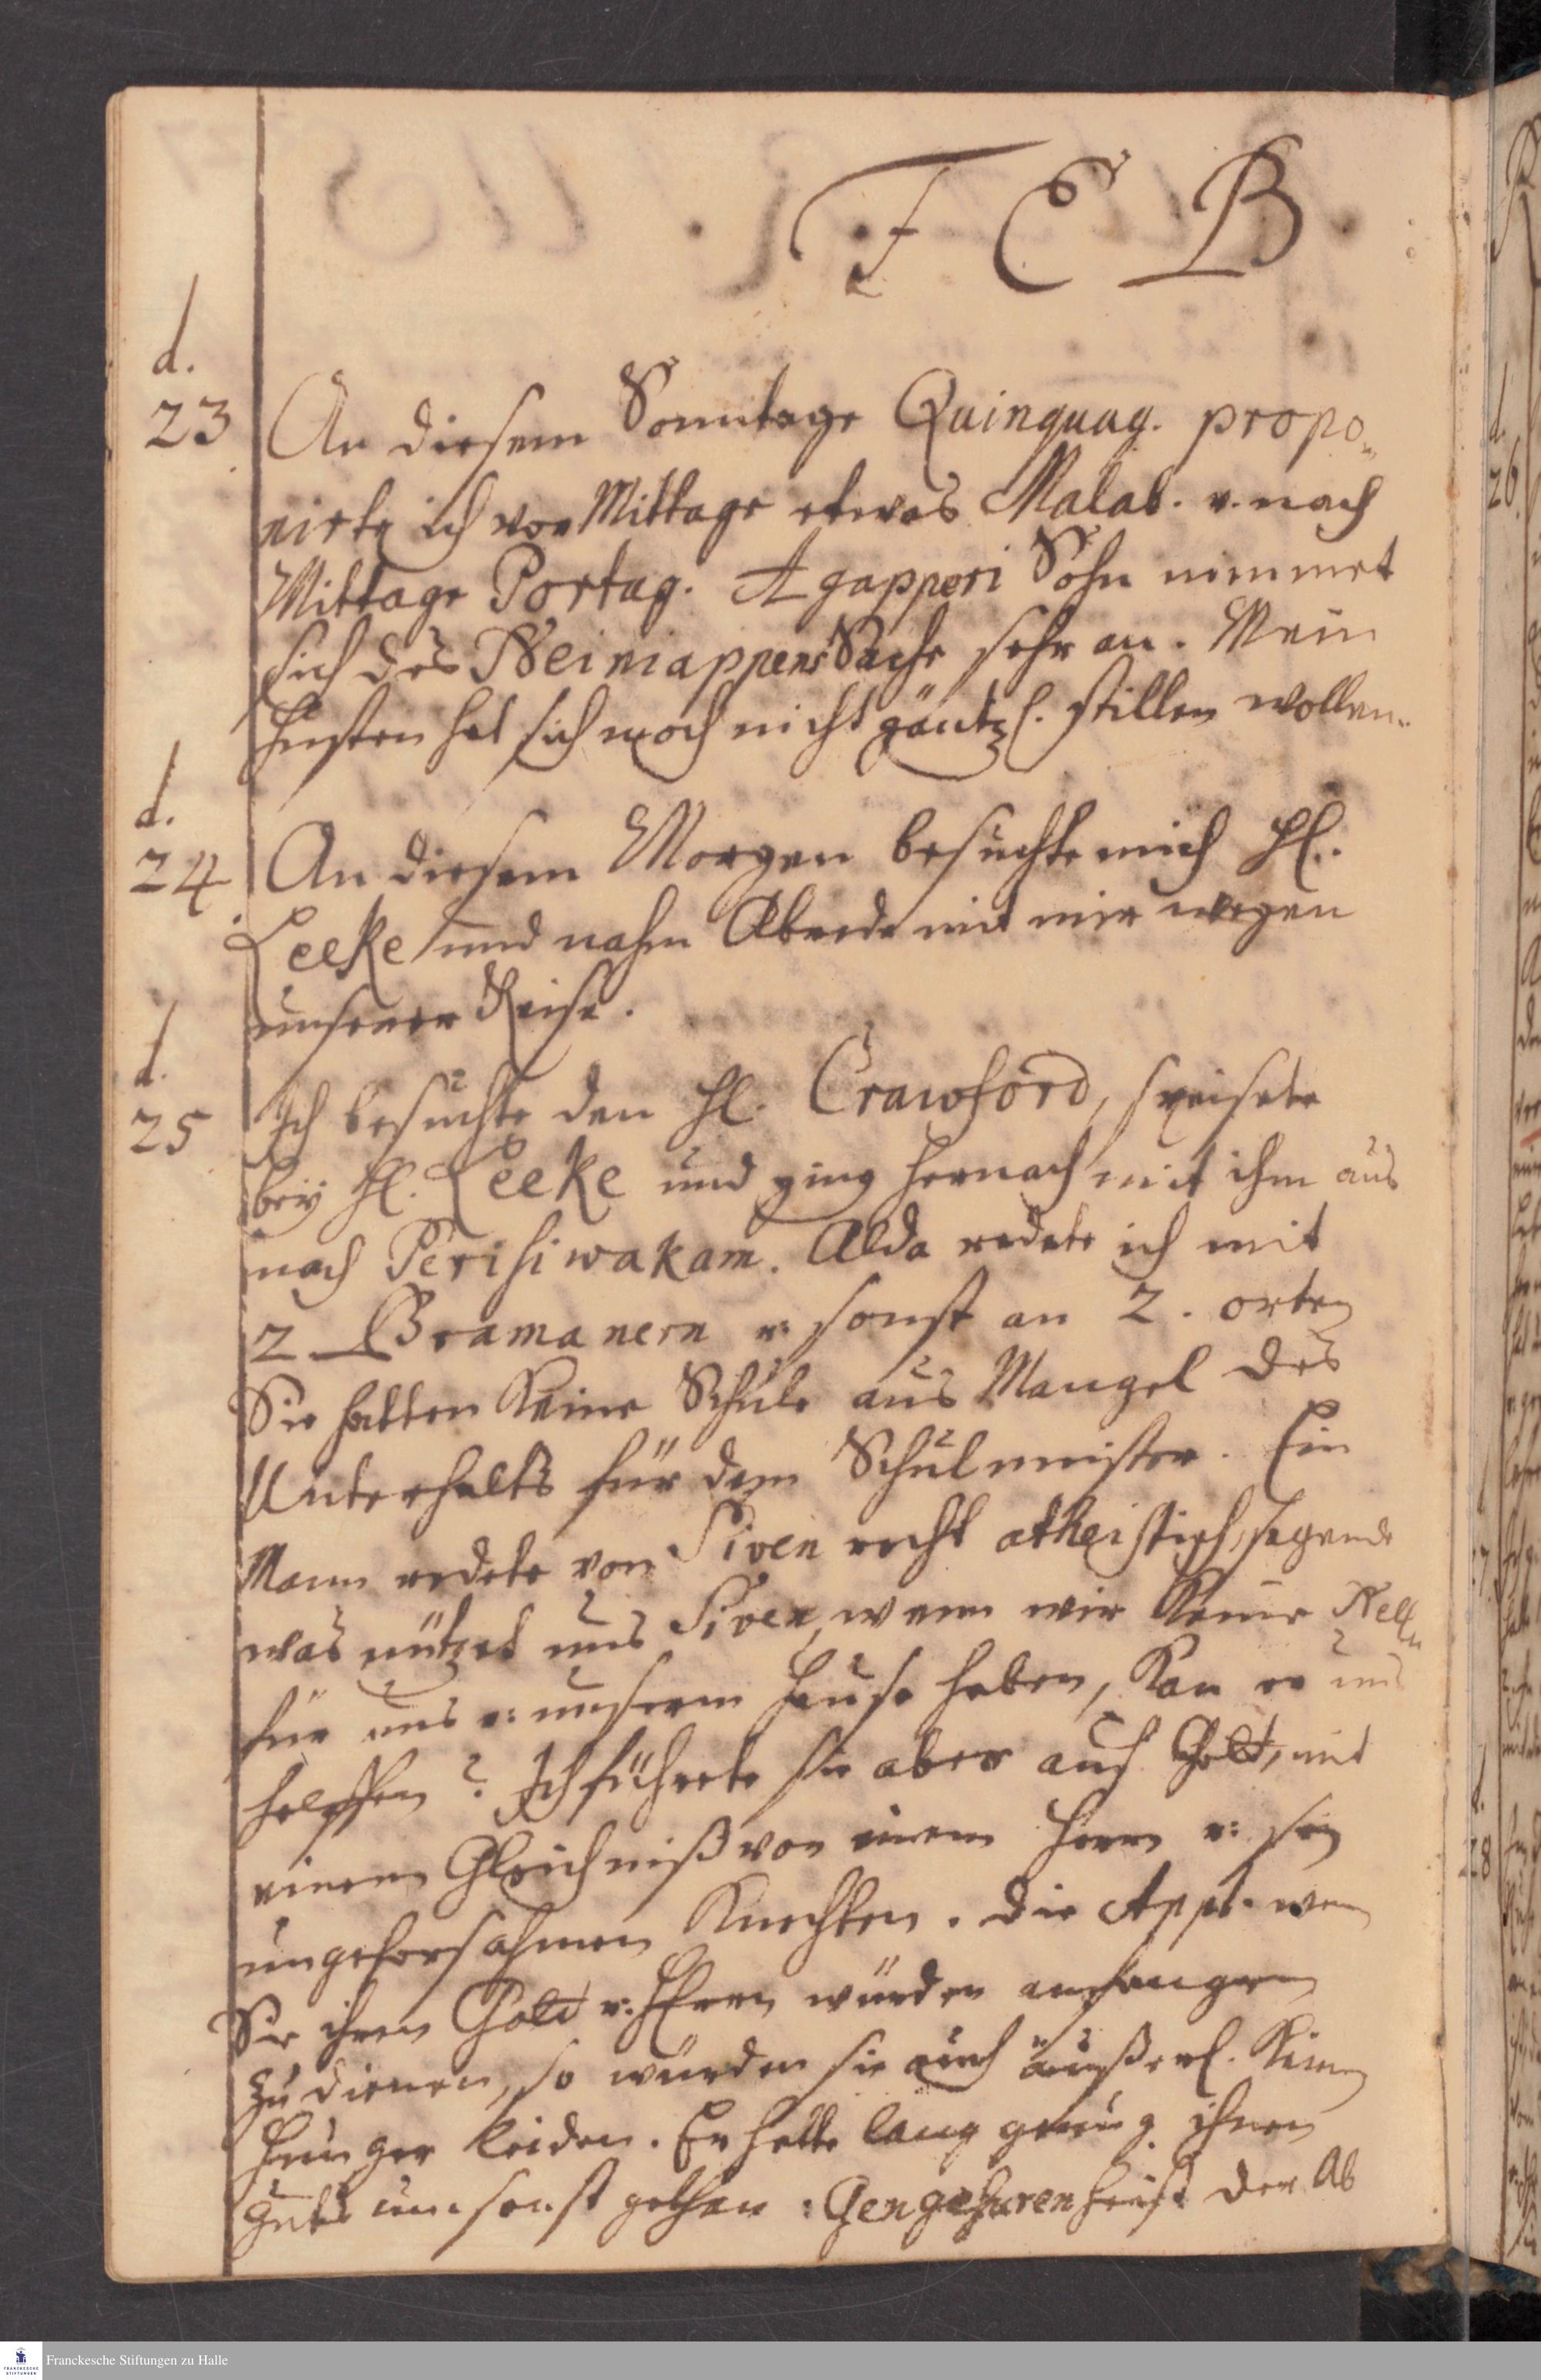 FEB.
d.
23.
An diesem Sonntage Quinquag. propo„
nirte ich vor Mittage etwas Malab. u. nach
Mittage Portug. Agapperi Sohn nimmet
sich des Neiniappens Sache sehr an. Mein
Husten hat sich noch nicht gäntzl. stillen wollen.
d.
24.
An diesem Morgen besuchte mich H.
Leeke und nahm Abrede mit mir wegen
unserer Reise.
d.
25
Ich besuchte den H. Crawford, speisete
bey H. Leeke und ging hernach mit ihm aus
nach Perisiwakam. Alda redete ich mit
2 Bramanern u: sonst an 2. orten
Sie hatten keine Schule aus Mangel des
Unterhalts für den Schulmeister. Ein
Mann redete von Siven recht atheistisch, sagende
was nützet uns Siven, wenn wir keine Nell„
für uns u: unserm Hause haben, kan er uns
helffen? Ich führete sie aber auf Gott, mit
einem Gleichniß von einem Herrn u:
ungehorsahmen Knechten. die Appl. wen
Sie ihren Gott u: Herrn würden anfangen
zu dienen, so würden sie auch äußerl. keinen
Hunger leiden. Er hätte lang genug ihnen
Gutes umsonst gethan: heist der Ab
Franckesche Stiftungen zu Halle